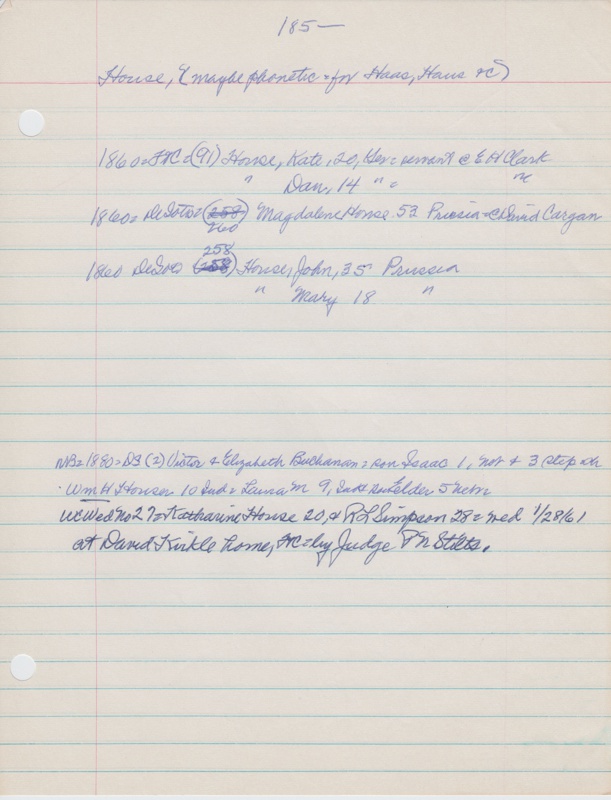 185—
House, (maybe phonetic = for Haas, Haus &c)
1860 = FtC = (91) House, Kate, 20, Ger = servant @ E H Clark
" Dan, 14 " = "
1860 = DeSoto = (258) Magdalene House 53 Prussia = @ David Cargan
260
258
1860 DeSoto (258) House, John, 35 Prussia
" Mary 18 "
NB = 1880 = DS (2) Victor & Elizabeth Buchanan = son Isaac 1, Nebr & 3 step ch
Wm H House 10 Ind = Laura M 9, Ind 5 Nebr
WCWed No 27 = Katharine House 20, & R L Simpson 28 = wed 1/28/61
at David Kirkle home, FtC = by Judge P N Stilts.